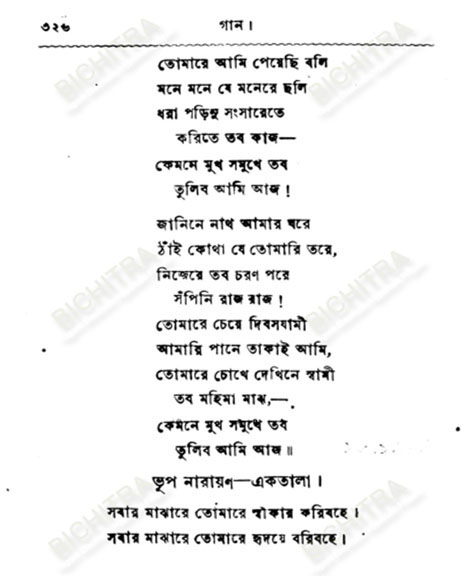 ৩২৬ গান।
তোমারে আমি পেয়েছি বলি
মনে মনে যে মনেরে ছলি
ধরা পড়িনু সংসারেতে
করিতে তব কাজ—
কেমনে মুখ সমুখে তব
তুলিব আমি আজ!
জানিনে নাথ আমার ঘরে
ঠাঁই কোথা যে তোমারি তরে,
নিজেরে তব চরণ পরে
সঁপিনি রাজ রাজ!
তোমারে চেয়ে দিবসযামী
আমারি পানে তাকাই আমি,
তোমারে চোখে দেখিনে স্বামী
তব মহিমা মাঝ,—
কেমনে মুখ সমুখে তব
তুলিব আমি আজ॥
ভূপ নারায়ণ—একতালা।
সবার মাঝারে তোমারে স্বীকার করিবহে।
সবার মাঝারে তোমারে হৃদয়ে বরিবহে।
BICHITRA
BICHITRA
BICHITRA
BICHITRA
BICHITRA
BICHITRA